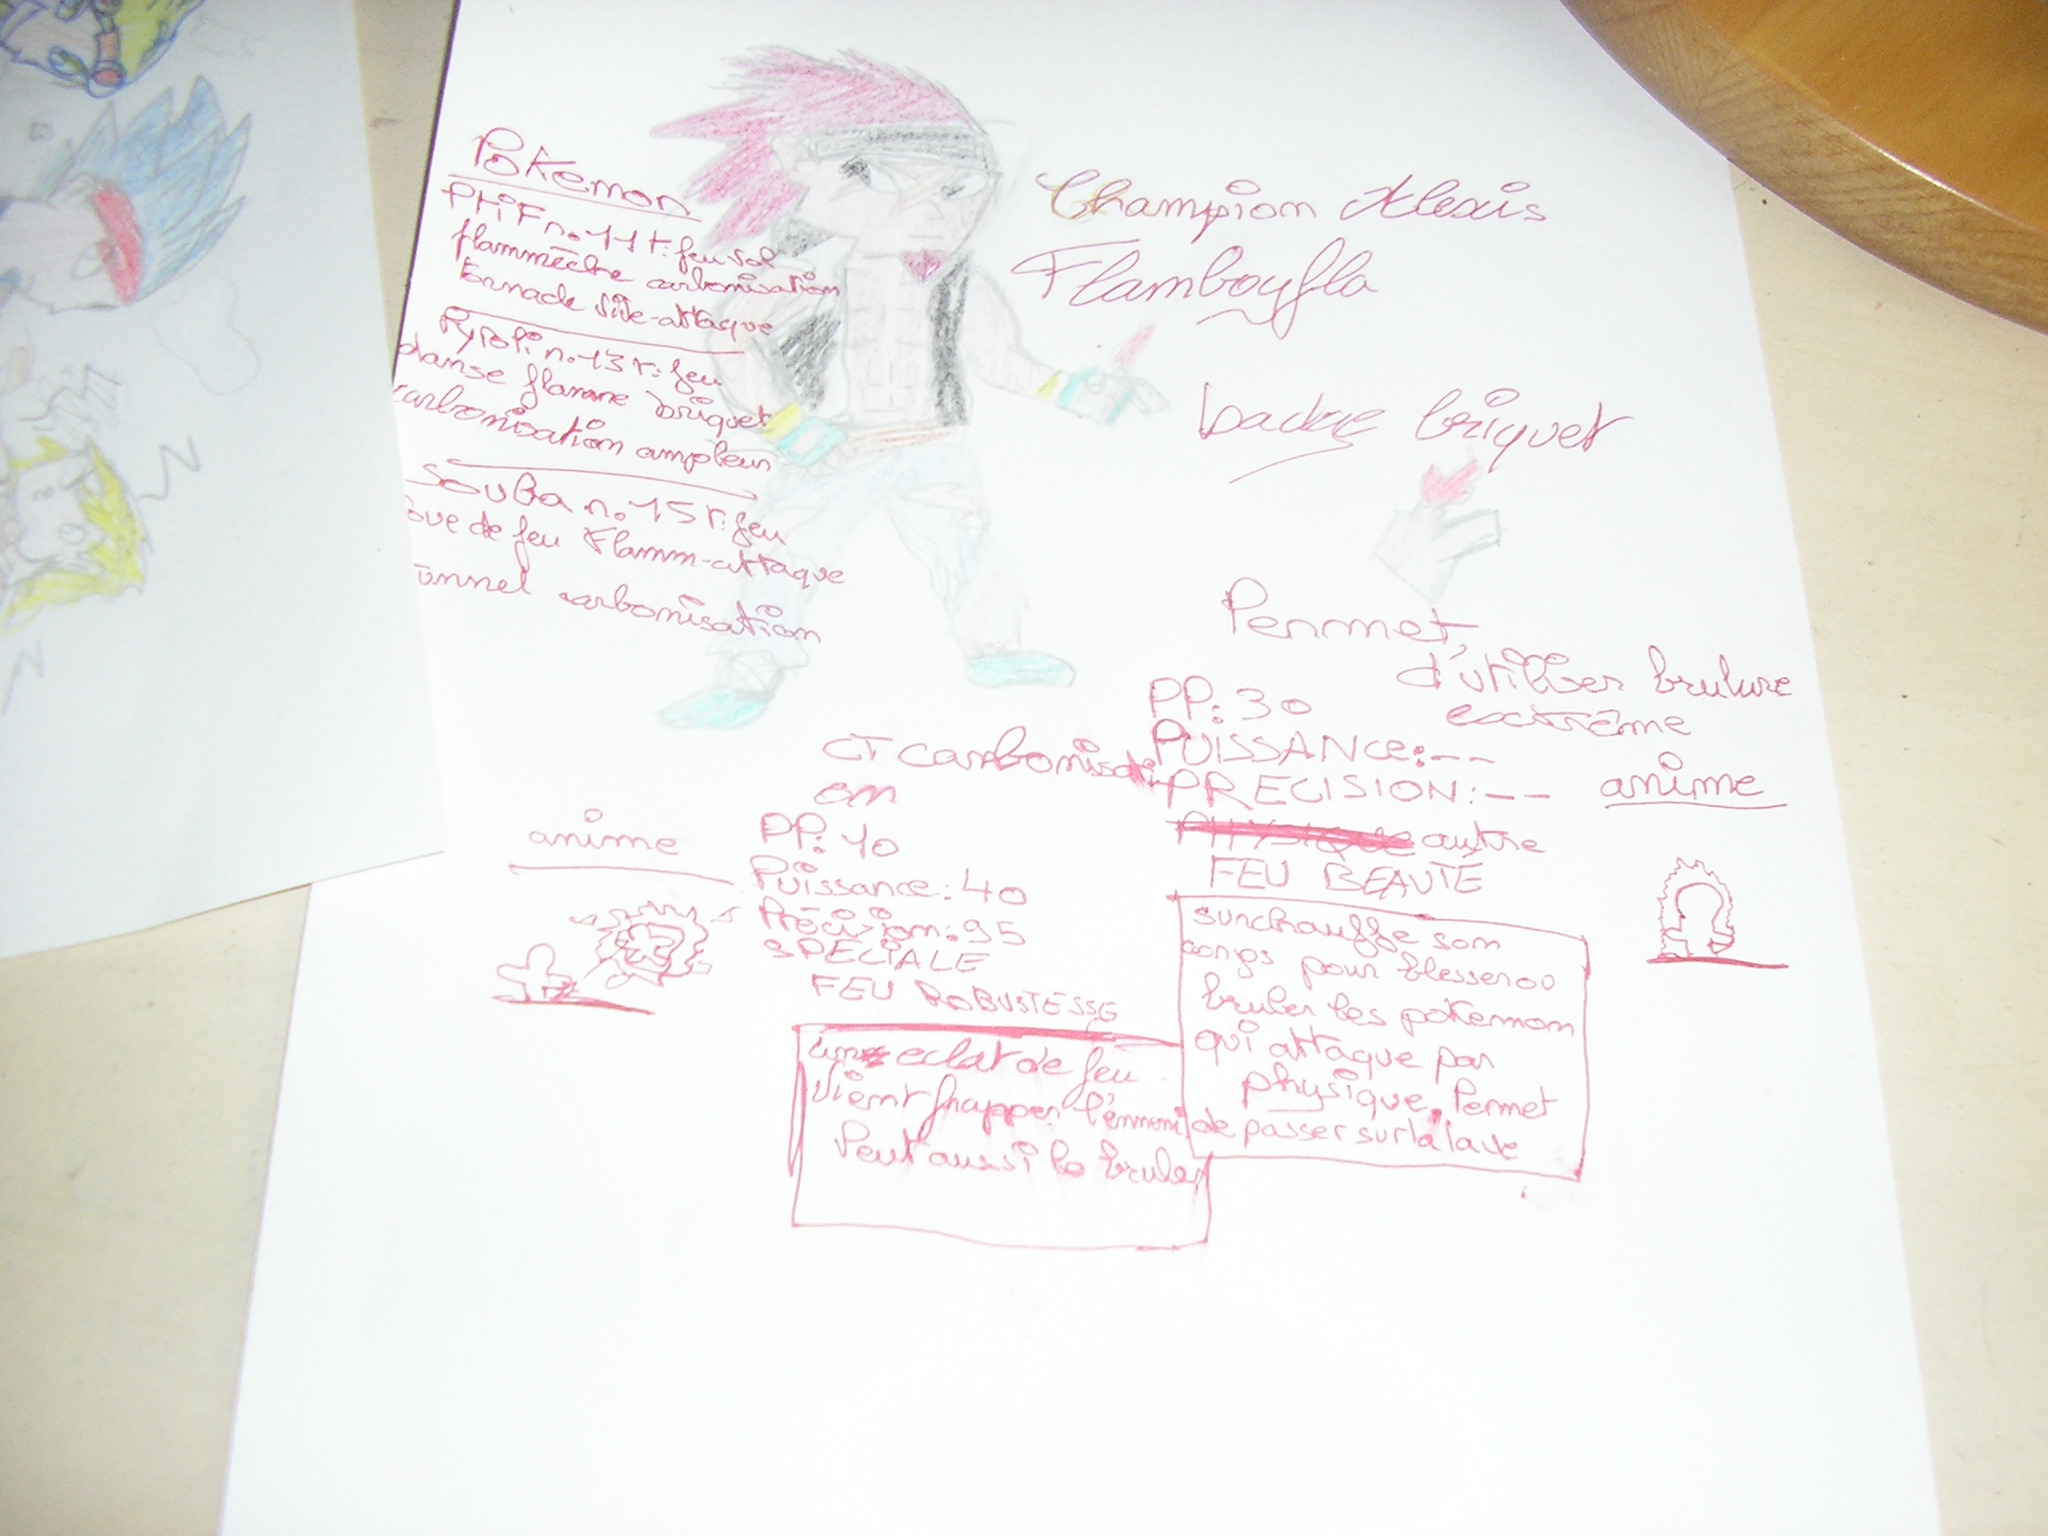 Pokemon
Ptif n.11 t: feu vol
flammèche carbonisation
tornade vive-attaque
n.13 t: feu
danse flamme briquet
carbonisation ampleur
Souba n.15 t: feu
de feu Flamm-attaque
tunnel carbonisation
Champion Alexis
Flamboyfla
badge briquet
Permet
d'utiliser brulure
extrême
PP: 30
PUISSANCE: --
PRECISION: --
PHYSIQUE autre
FEU BEAUTÉ
anime
surchauffe son
corps pour blesser ou
bruler les pokemon
qui attaque par
physique. Permet
de passer sur la lave
CT carbonisati
on
PP: 10
Puissance: 40
Précision: 95
SPECIALE
FEU ROBUSTESSE
anime
un eclat de feu
vient frapper l'ennemi
Peut aussi le bruler